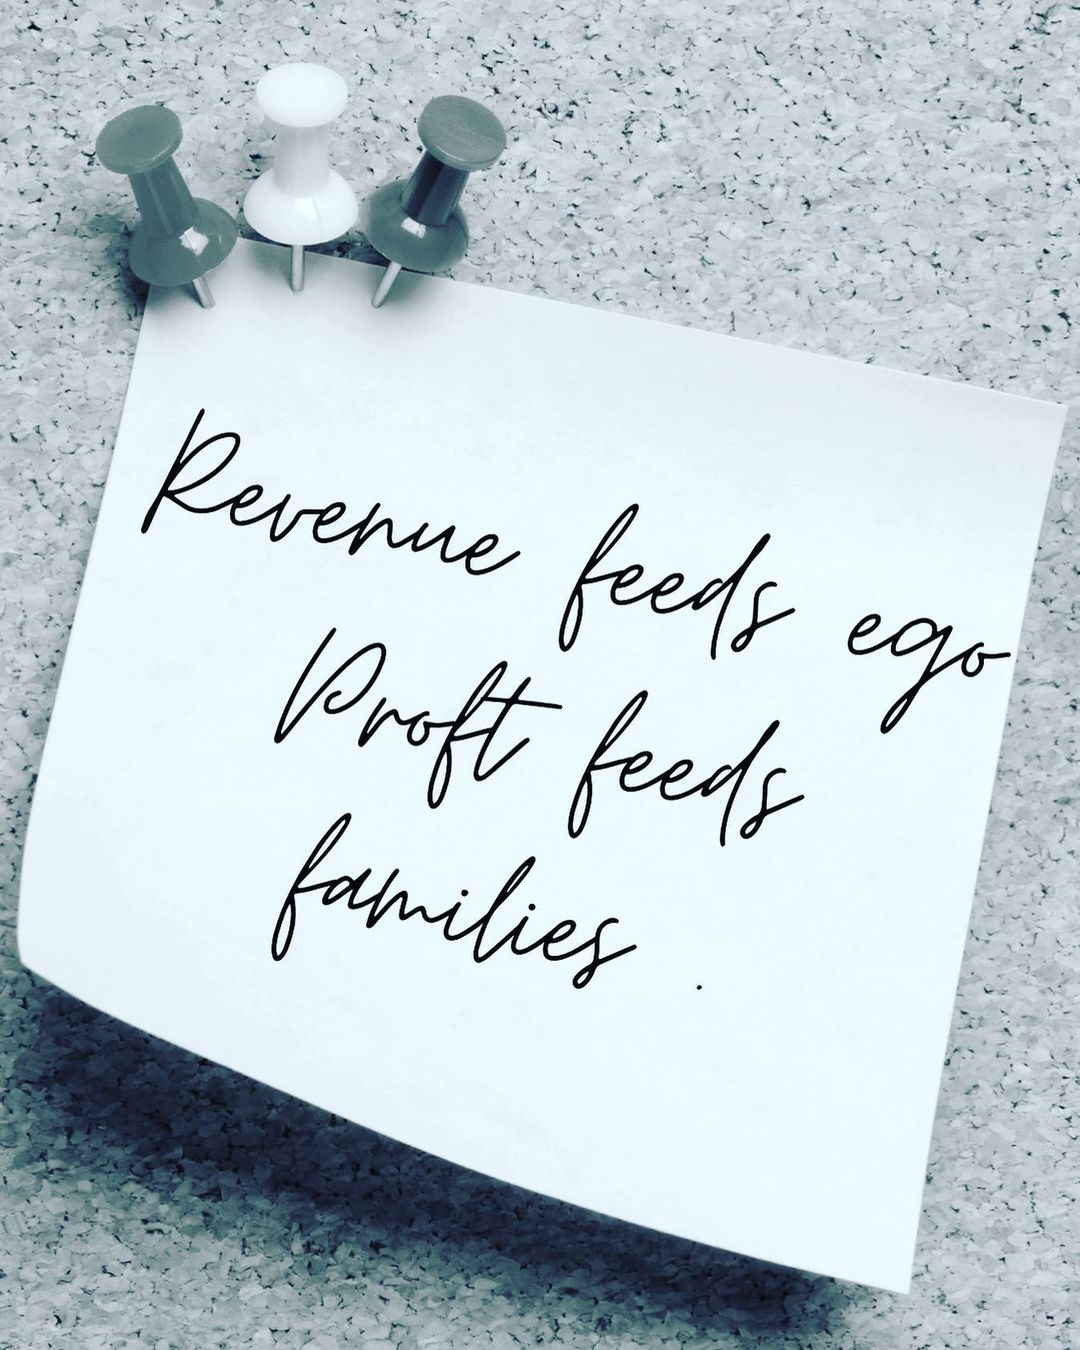 Revenue feeds ego
Proft feeds
families .